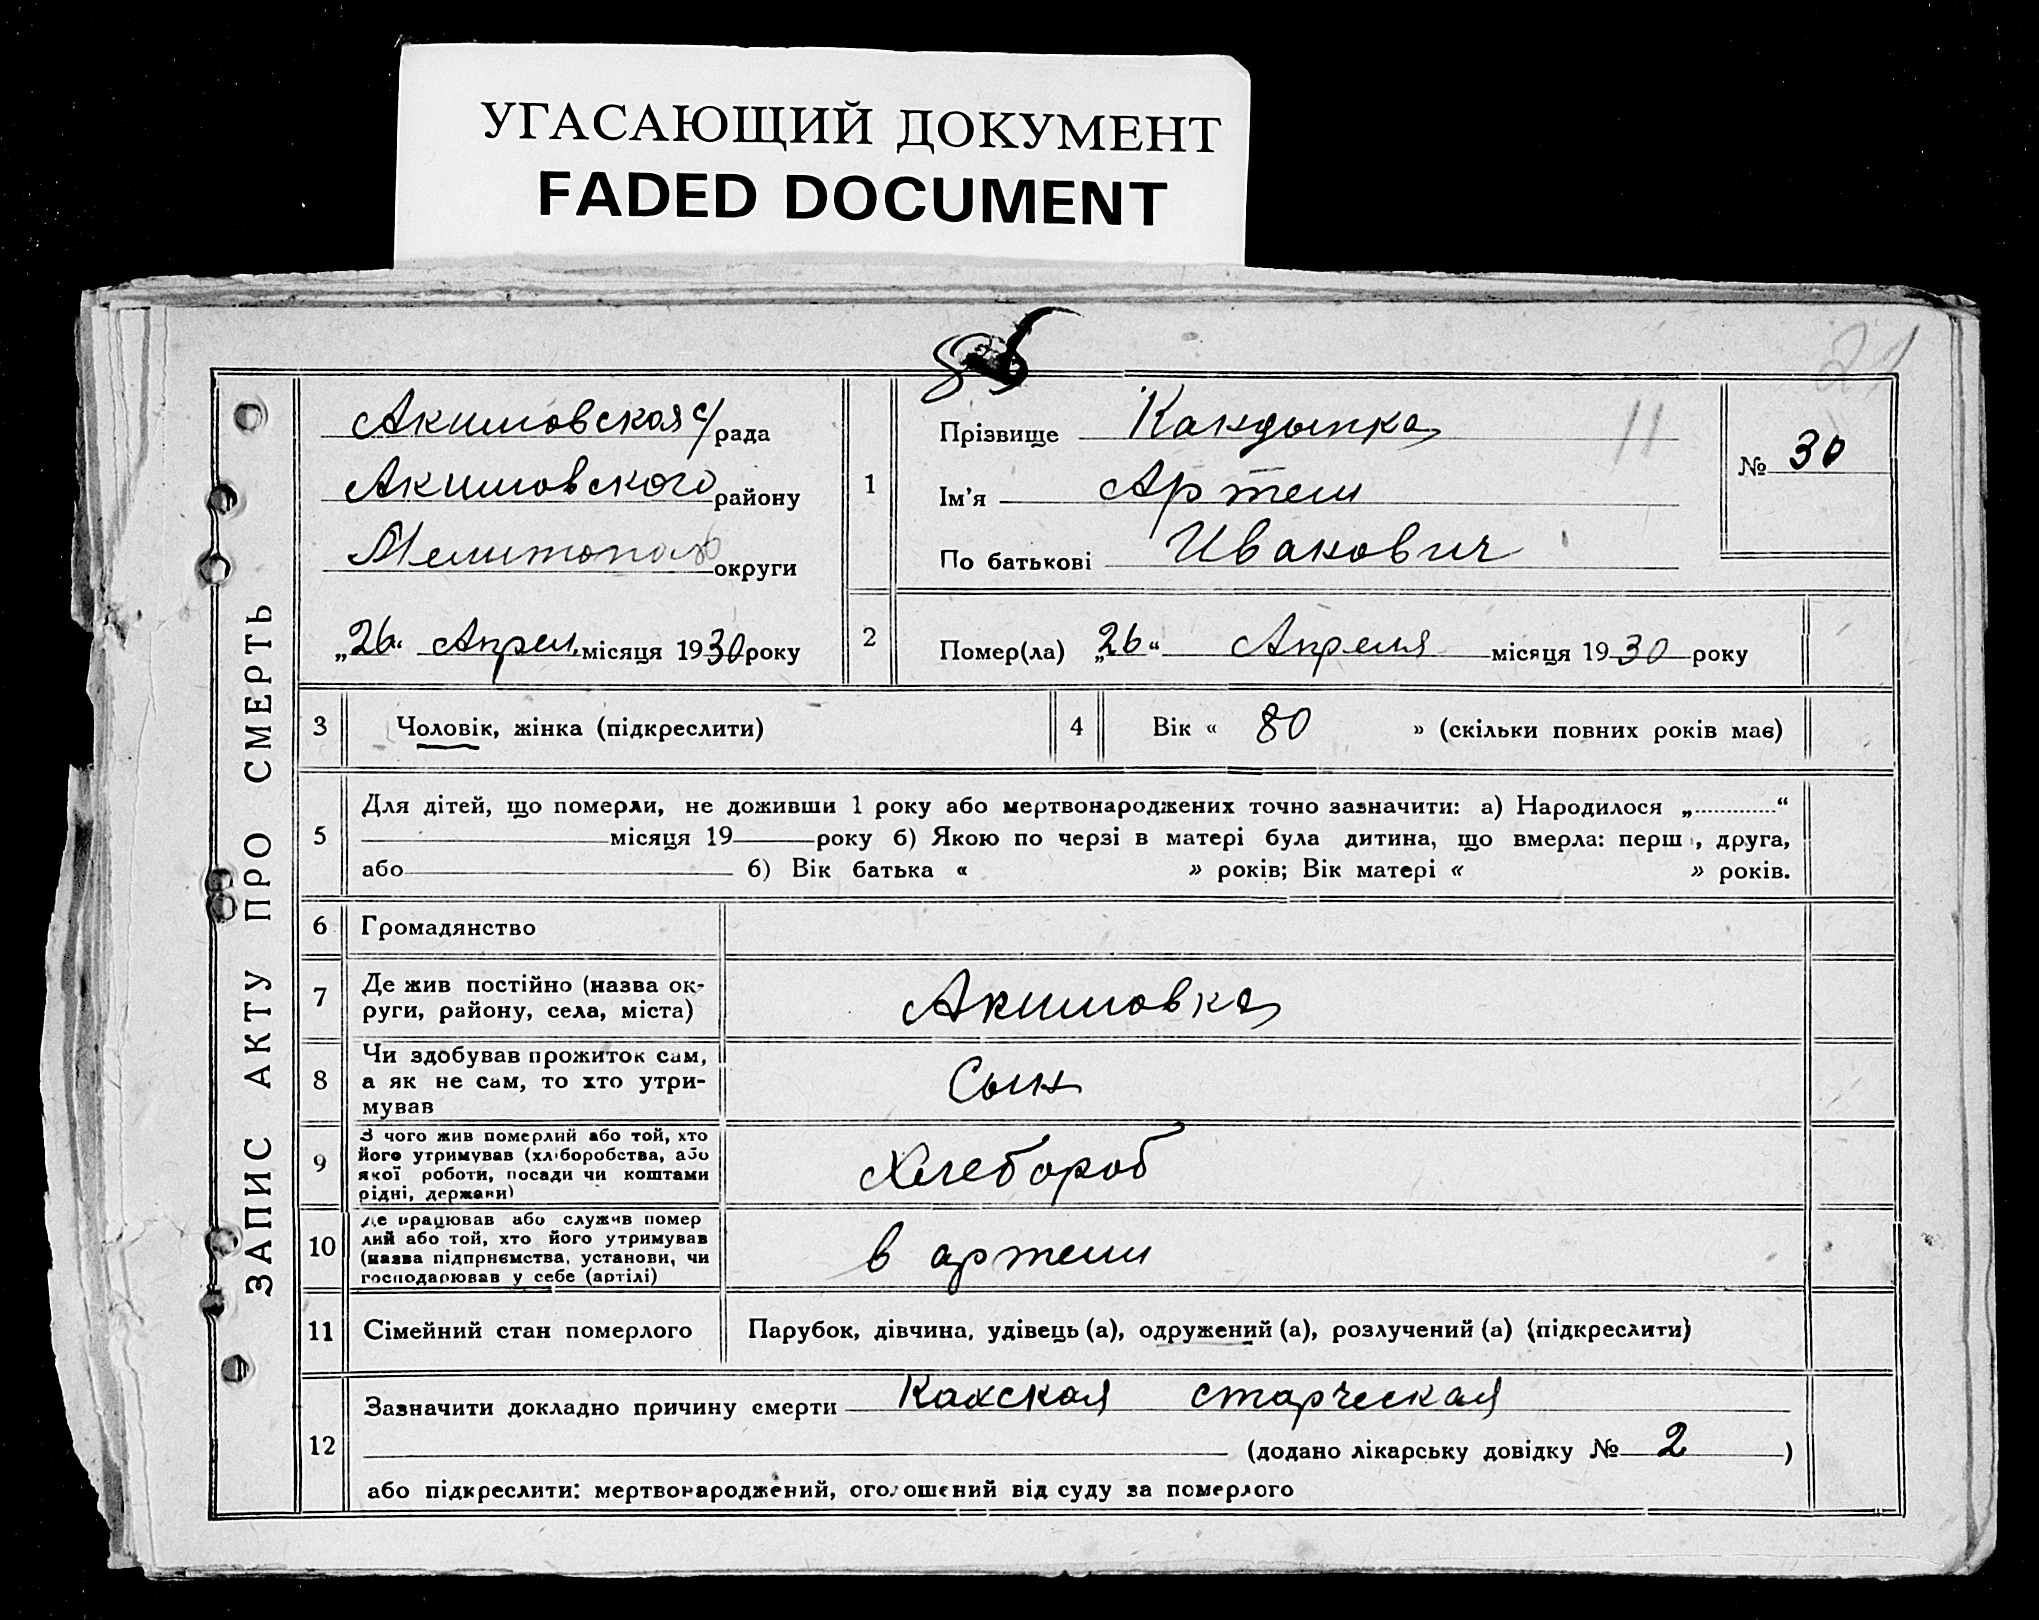 УГАСАЮЩИЙ ДОКУМЕНТ
FADED DOCUMENT
21
ЗАПИС АКТУ ПРО СМЕРТЬ
Акимовская с/рада
Акимовского району
Мелитопол округи
„26“ Апрел місяця 1930 року
1
Прізвище Кандыпка
11
Ім’я Артем
По батькові Иванович
№ 30
2
Помер(ла) „26“ Апреля місяця 1930 року
3 Чоловік, жінка (підкреслити)
4 Вік « 80 » (скільки повних років має)
5
Для дітей, що померли, не доживши 1 року або мертвонароджених точно зазначити: а) Народилося „............“
місяця 19 року б) Якою по черзі в матері була дитина, що вмерла: перш , друга,
або б) Вік батька « » років; Вік матері « » років.
6 Громадянство
7
Де жив постійно (назва ок-
руги, району, села, міста)
Акимовка
8
Чи здобував прожиток сам,
а як не сам, то хто утри-
мував
Сын
9
З чого жив померлий або той, хто
його утримував (хліборобства, або
якої роботи, посади чи коштами
рідні, держави)
Хлебороб
10
Де працював або служив помер
лий або той, хто його утримував
(назва підприємства, установи, чи
господарював у себе (артілі)
в артели
11 Сімейний стан померлого
Парубок, дівчина, удівець (а), одружений (а), розлучений (а) (підкреслити)
12
Зазначити докладно причину смерти старческая
(додано лікарську довідку № 2 )
або підкреслити: мертвонароджений, оголошений від суду за померлого